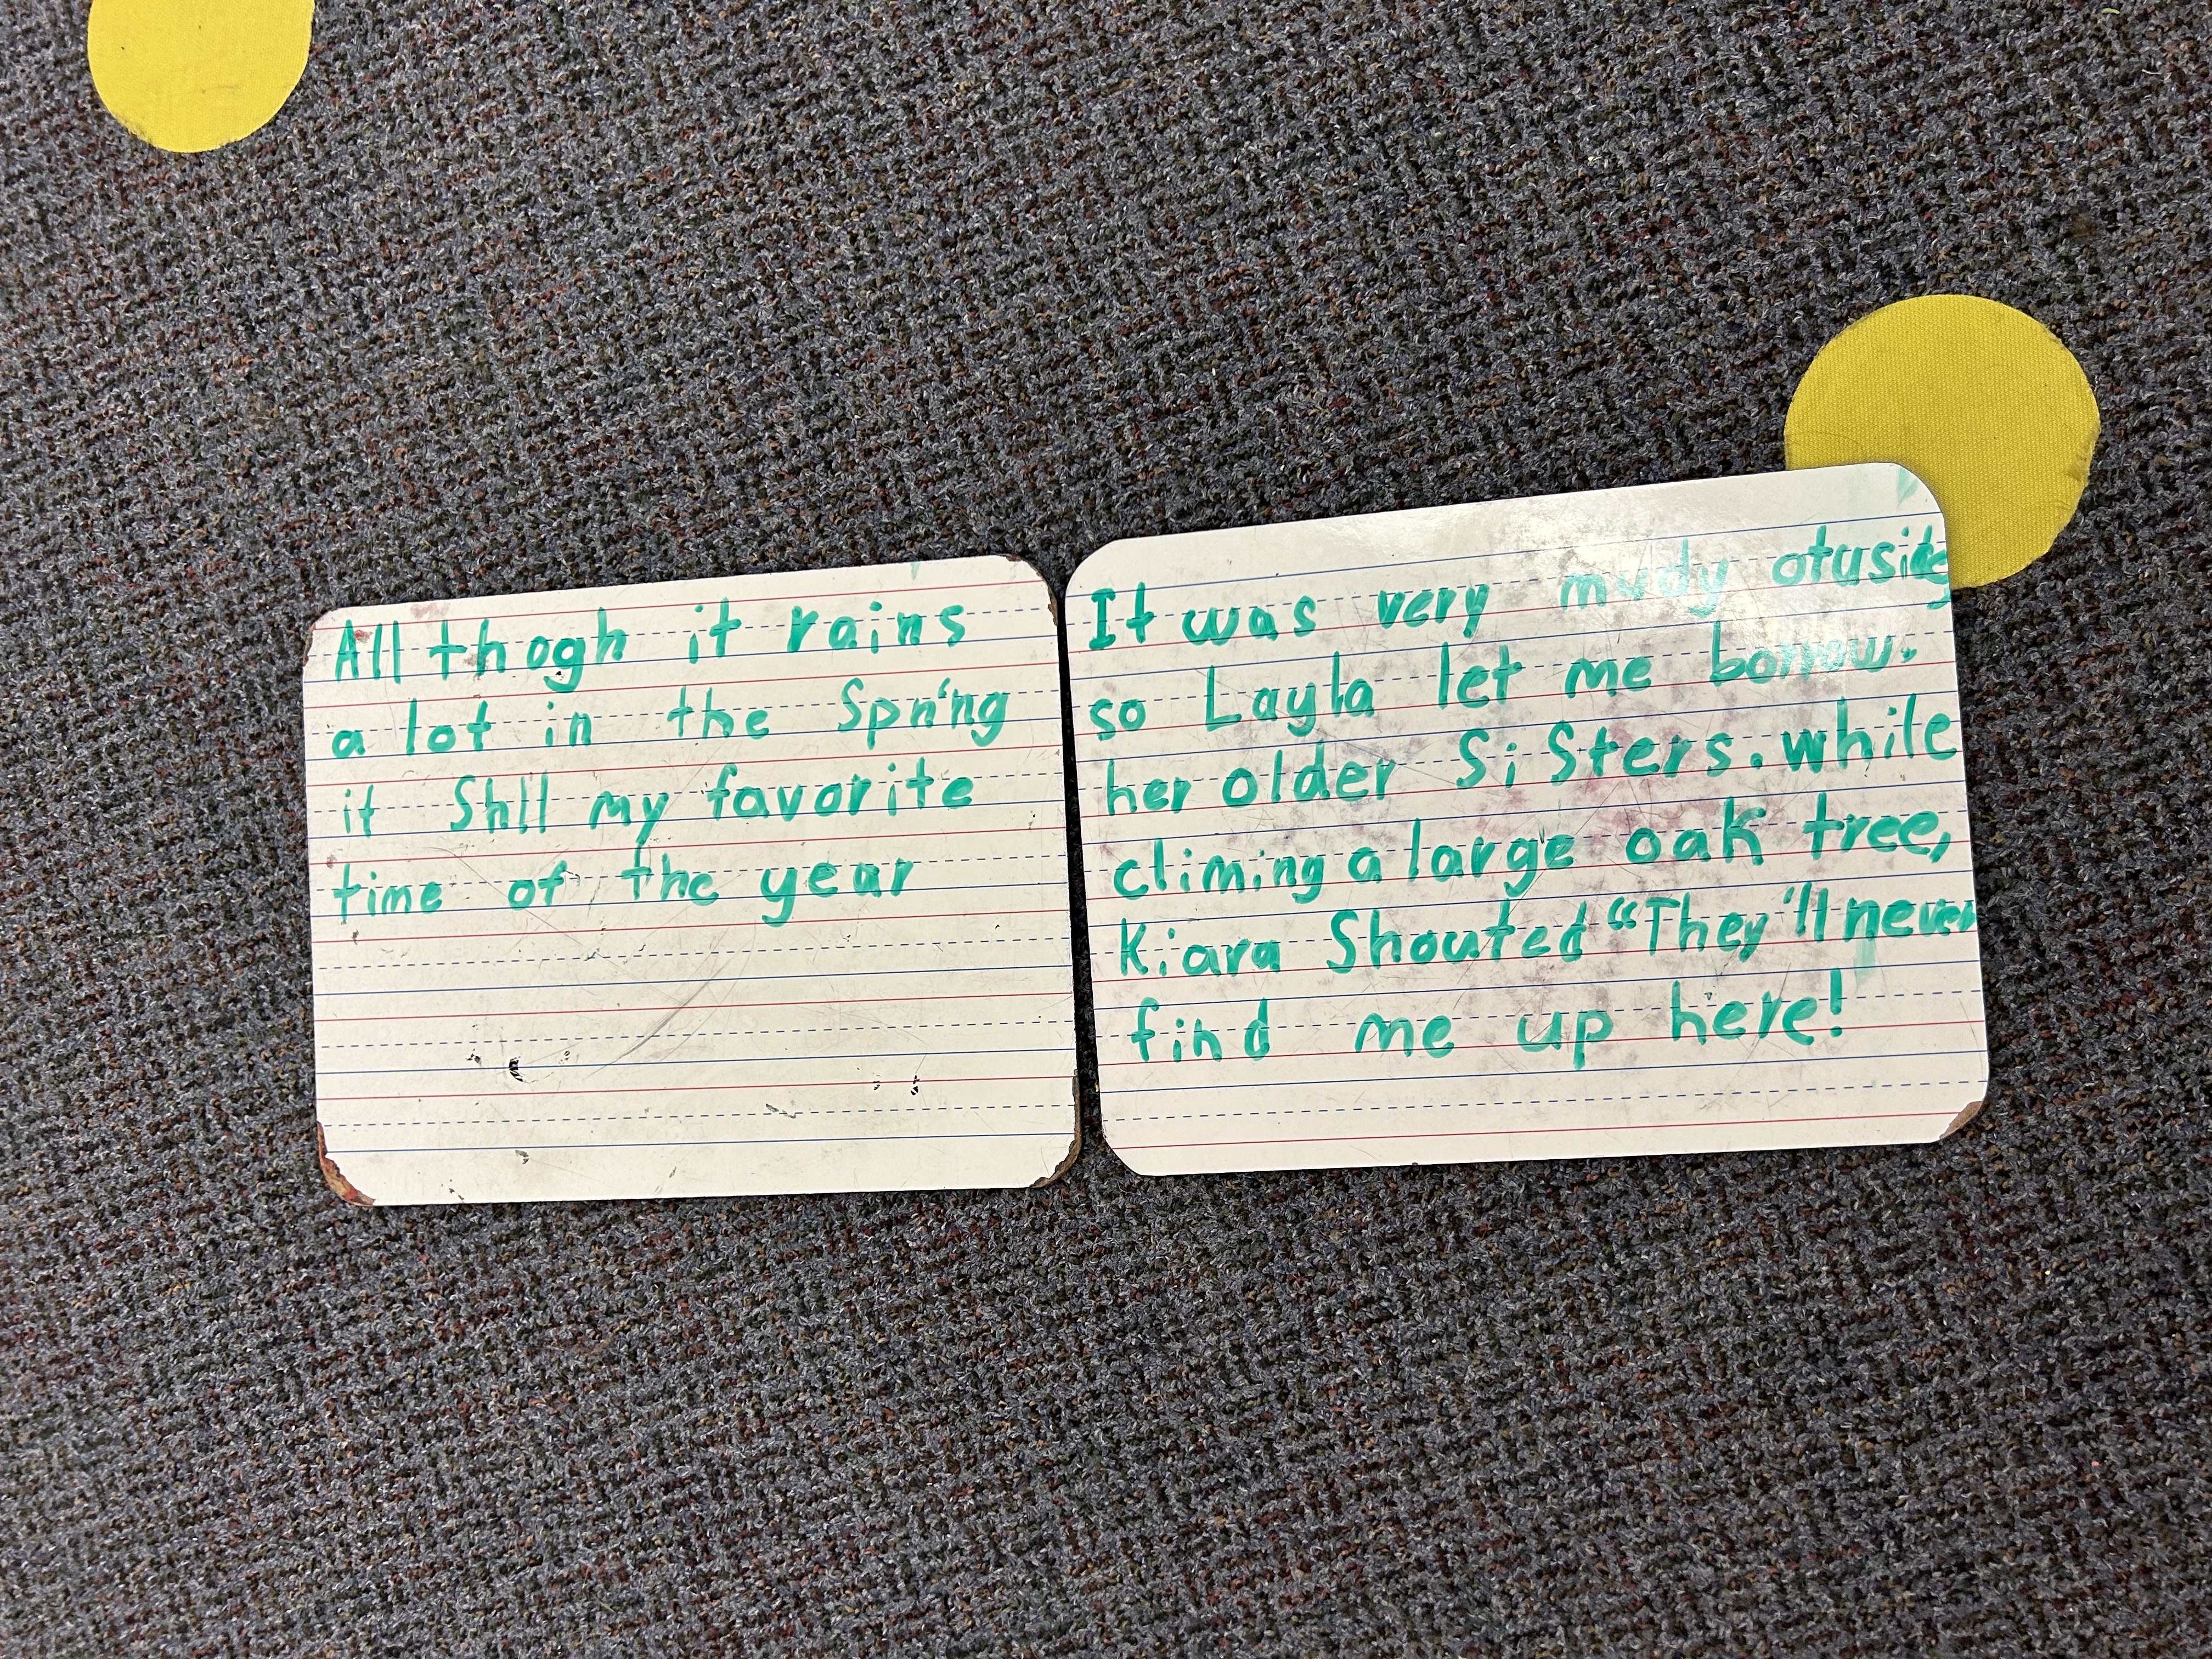 All thogh it rains
a lot in the Spring
it Still my favorite
time of the year
It was very mudy otuside
so Layla let me borrow.
her older SiSters. while
climing a large oak tree,
Kiara Shouted "They'll never
find me up here!